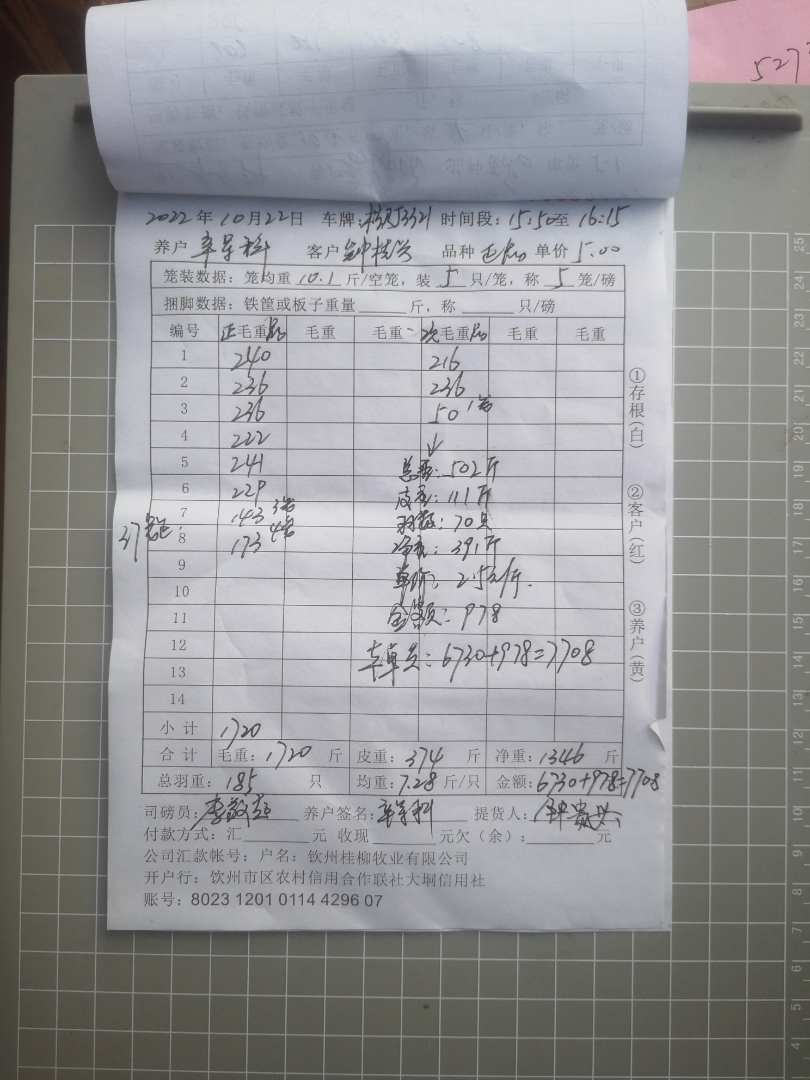 527
2022年10月22日 车牌: 时间段:15:50至16:15
养户 客户 品种 单价 5.00
笼装数据:笼均重 10.1 斤/空笼,装 5 只/笼,称 5 笼/磅
捆脚数据:铁筐或板子重量 斤,称 只/磅
编号 正毛重 毛重 毛重 次毛重 毛重 毛重
1 240 216
2 236 236
3 236 50 1笼
4 222
5 241 总重:502斤
6 229 皮重:111斤
7 143 3笼 羽数:70只
37笼
8 173 4笼 净重:391斤
9 单价:2.5元/斤.
10
11 金额:978
12 6730+978=7708
13
14
小计 1720
合计 毛重:1720 斤 皮重:374 斤 净重:1346 斤
总羽重:185 只 均重:7.28 斤/只 金额:6730+978=7708
司磅员: 养户签名: 提货人:
付款方式:汇 元 收现 元欠(余): 元
公司汇款帐号:户名:钦州桂柳牧业有限公司
开户行:钦州市区农村信用合作联社大垌信用社
账号:8023 1201 0114 4296 07
①存根(白)
②客户(红)
③养户(黄)
25
22
21
20
19
18
17
16
15
14
13
12
11
10
9
8
7
6
5
4